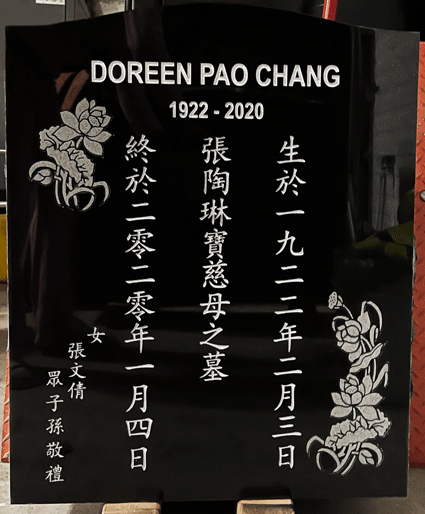 DOREEN PAO CHANG
1922 - 2020
生於一九二二年二月三日
張陶琳寶慈母之墓
終於二零二零年一月四日
女
張文倩
眾子孫敬禮